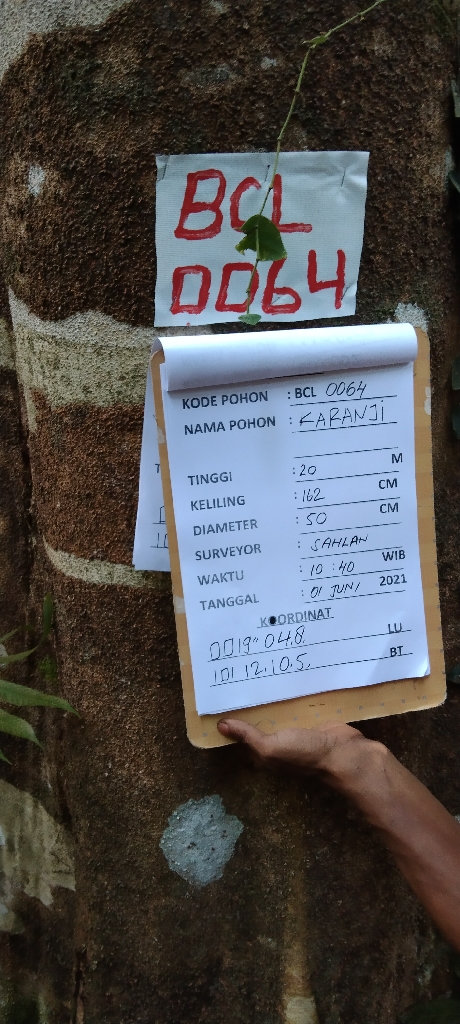 BCL
0064
KODE POHON : BCL 0064
NAMA POHON : KARANJI
TINGGI : 20 M
KELILING : 162 CM
DIAMETER : 50 CM
SURVEYOR : SAHLAN
WAKTU : 10:40 WIB
TANGGAL : 01 JUNI 2021
KOORDINAT
0019" 04.8. LU
101 12.10.5. BT